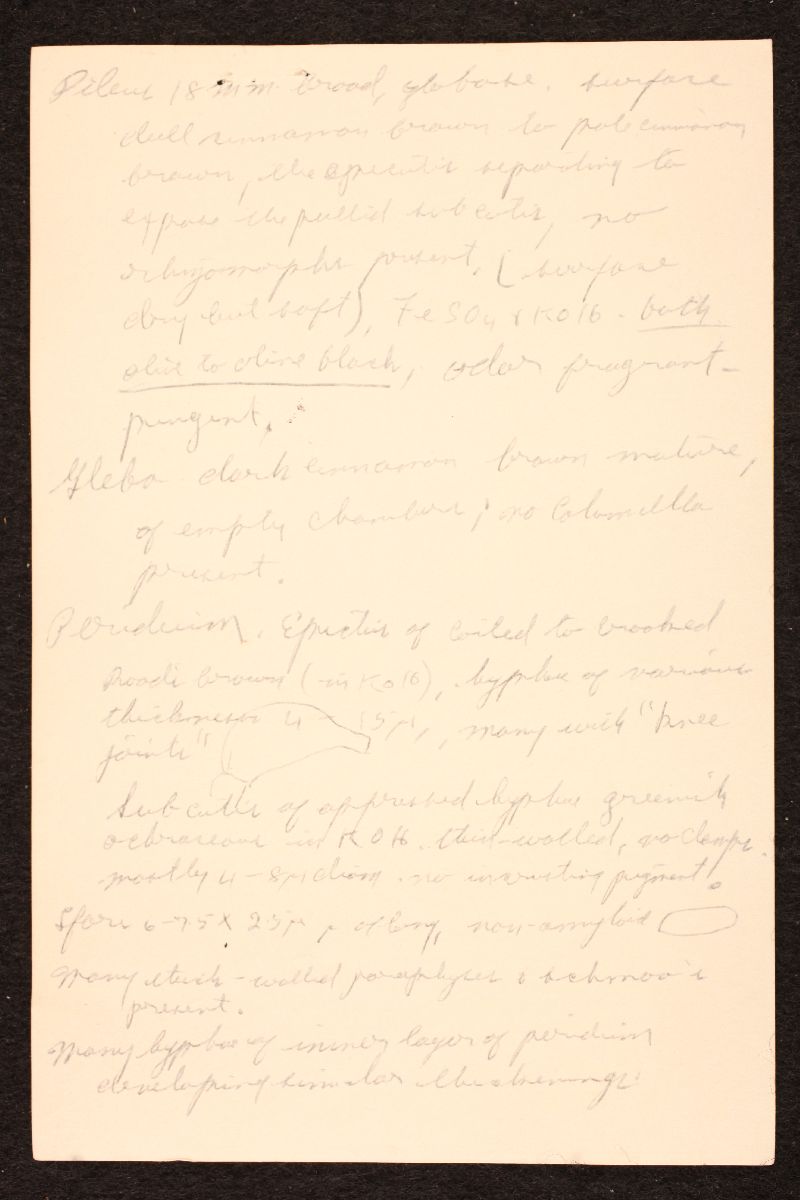 Pileus 18 mm broad, globose. surface
dull cinnamon brown to pale cinnamon
brown, the epicutis separating to
expose the pallid subcutis, no
rhizomorphs present. (surface
dry but soft), FeSO4 & KOH - both
olive to olive black, odor fragrant-
pungent.
Gleba dark cinnamon brown mature,
of empty chambers; no columella
present.
Peridium. Epicutis of coiled to crooked
brown (in KOH), hyphae of various
thickness 4 - 15µ, many with "knee
joints"
Subcutis of appressed hyphae greenish
ochraceous in KOH. thin-walled, no clamps.
mostly 4-8µ diam. no incrusting pigment.
Spores 6-7.5 X 2.5µ oblong, non-amyloid
Many thick-walled paraphyses &
present.
Many hyphae of inner layer of peridium
developing similar thickenings